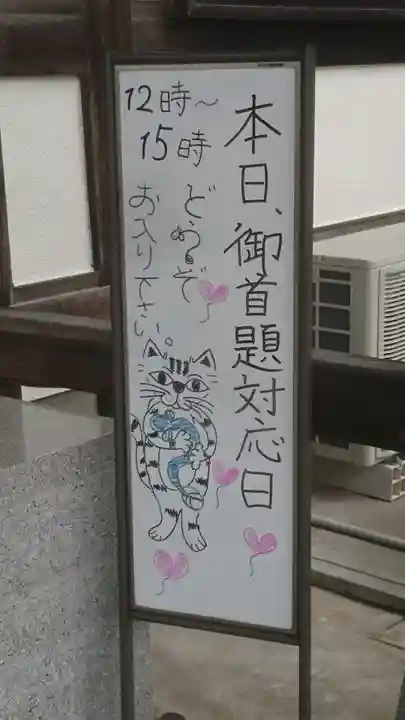 本日、御首題対応日
12時〜
15時
どうぞ
お入り下さい。